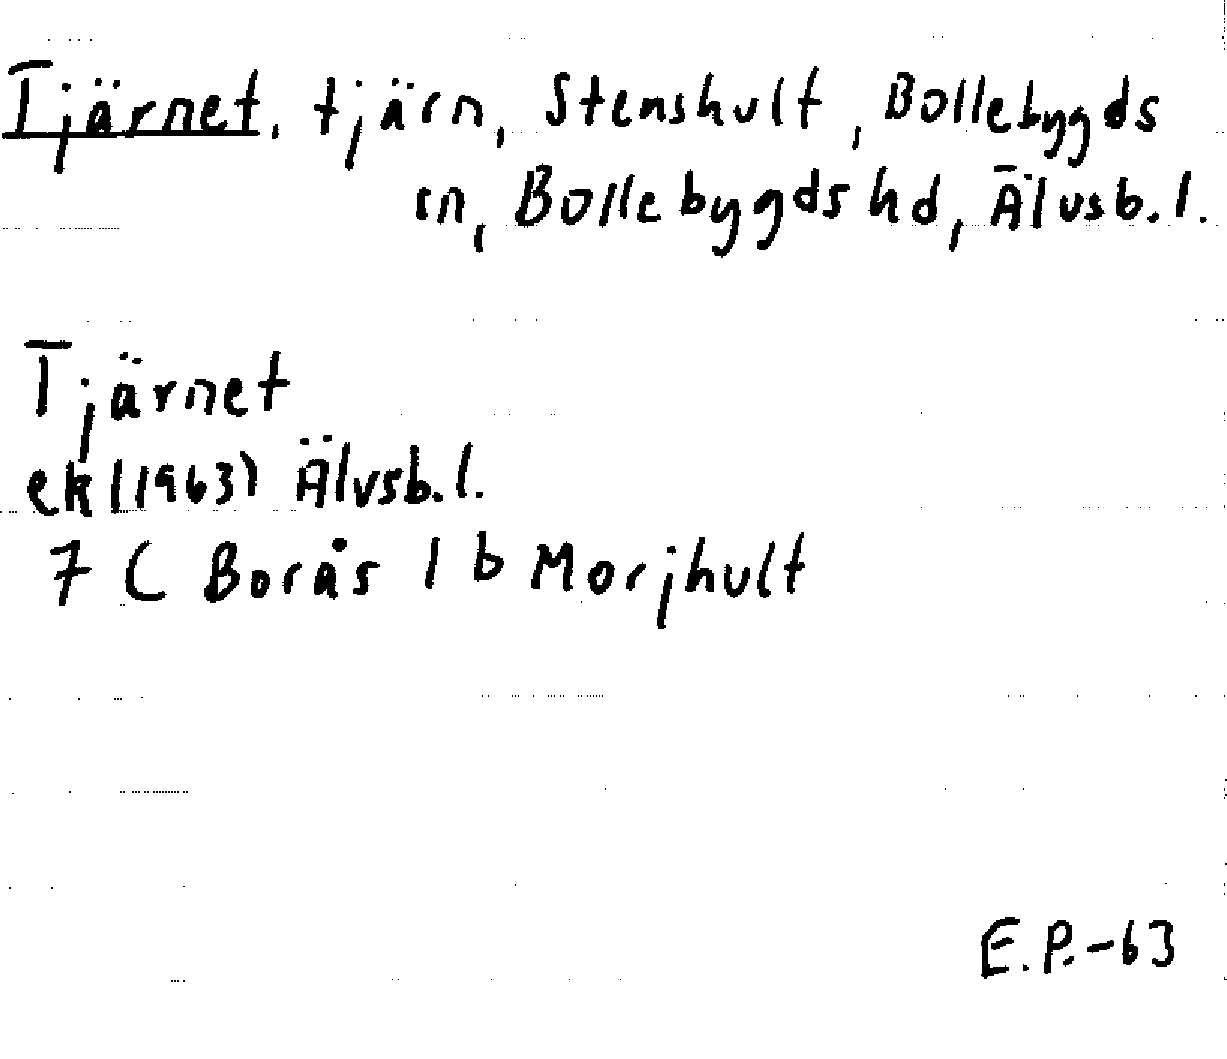 Tjärnet, tjärn, Stenshult, Bollebygds
sn, Bollebygds hd, Älvsb. l.
Tjärnet
ek (1963) Älvsb. l.
7 C Borås 1 b Morjhult
E.P.-63